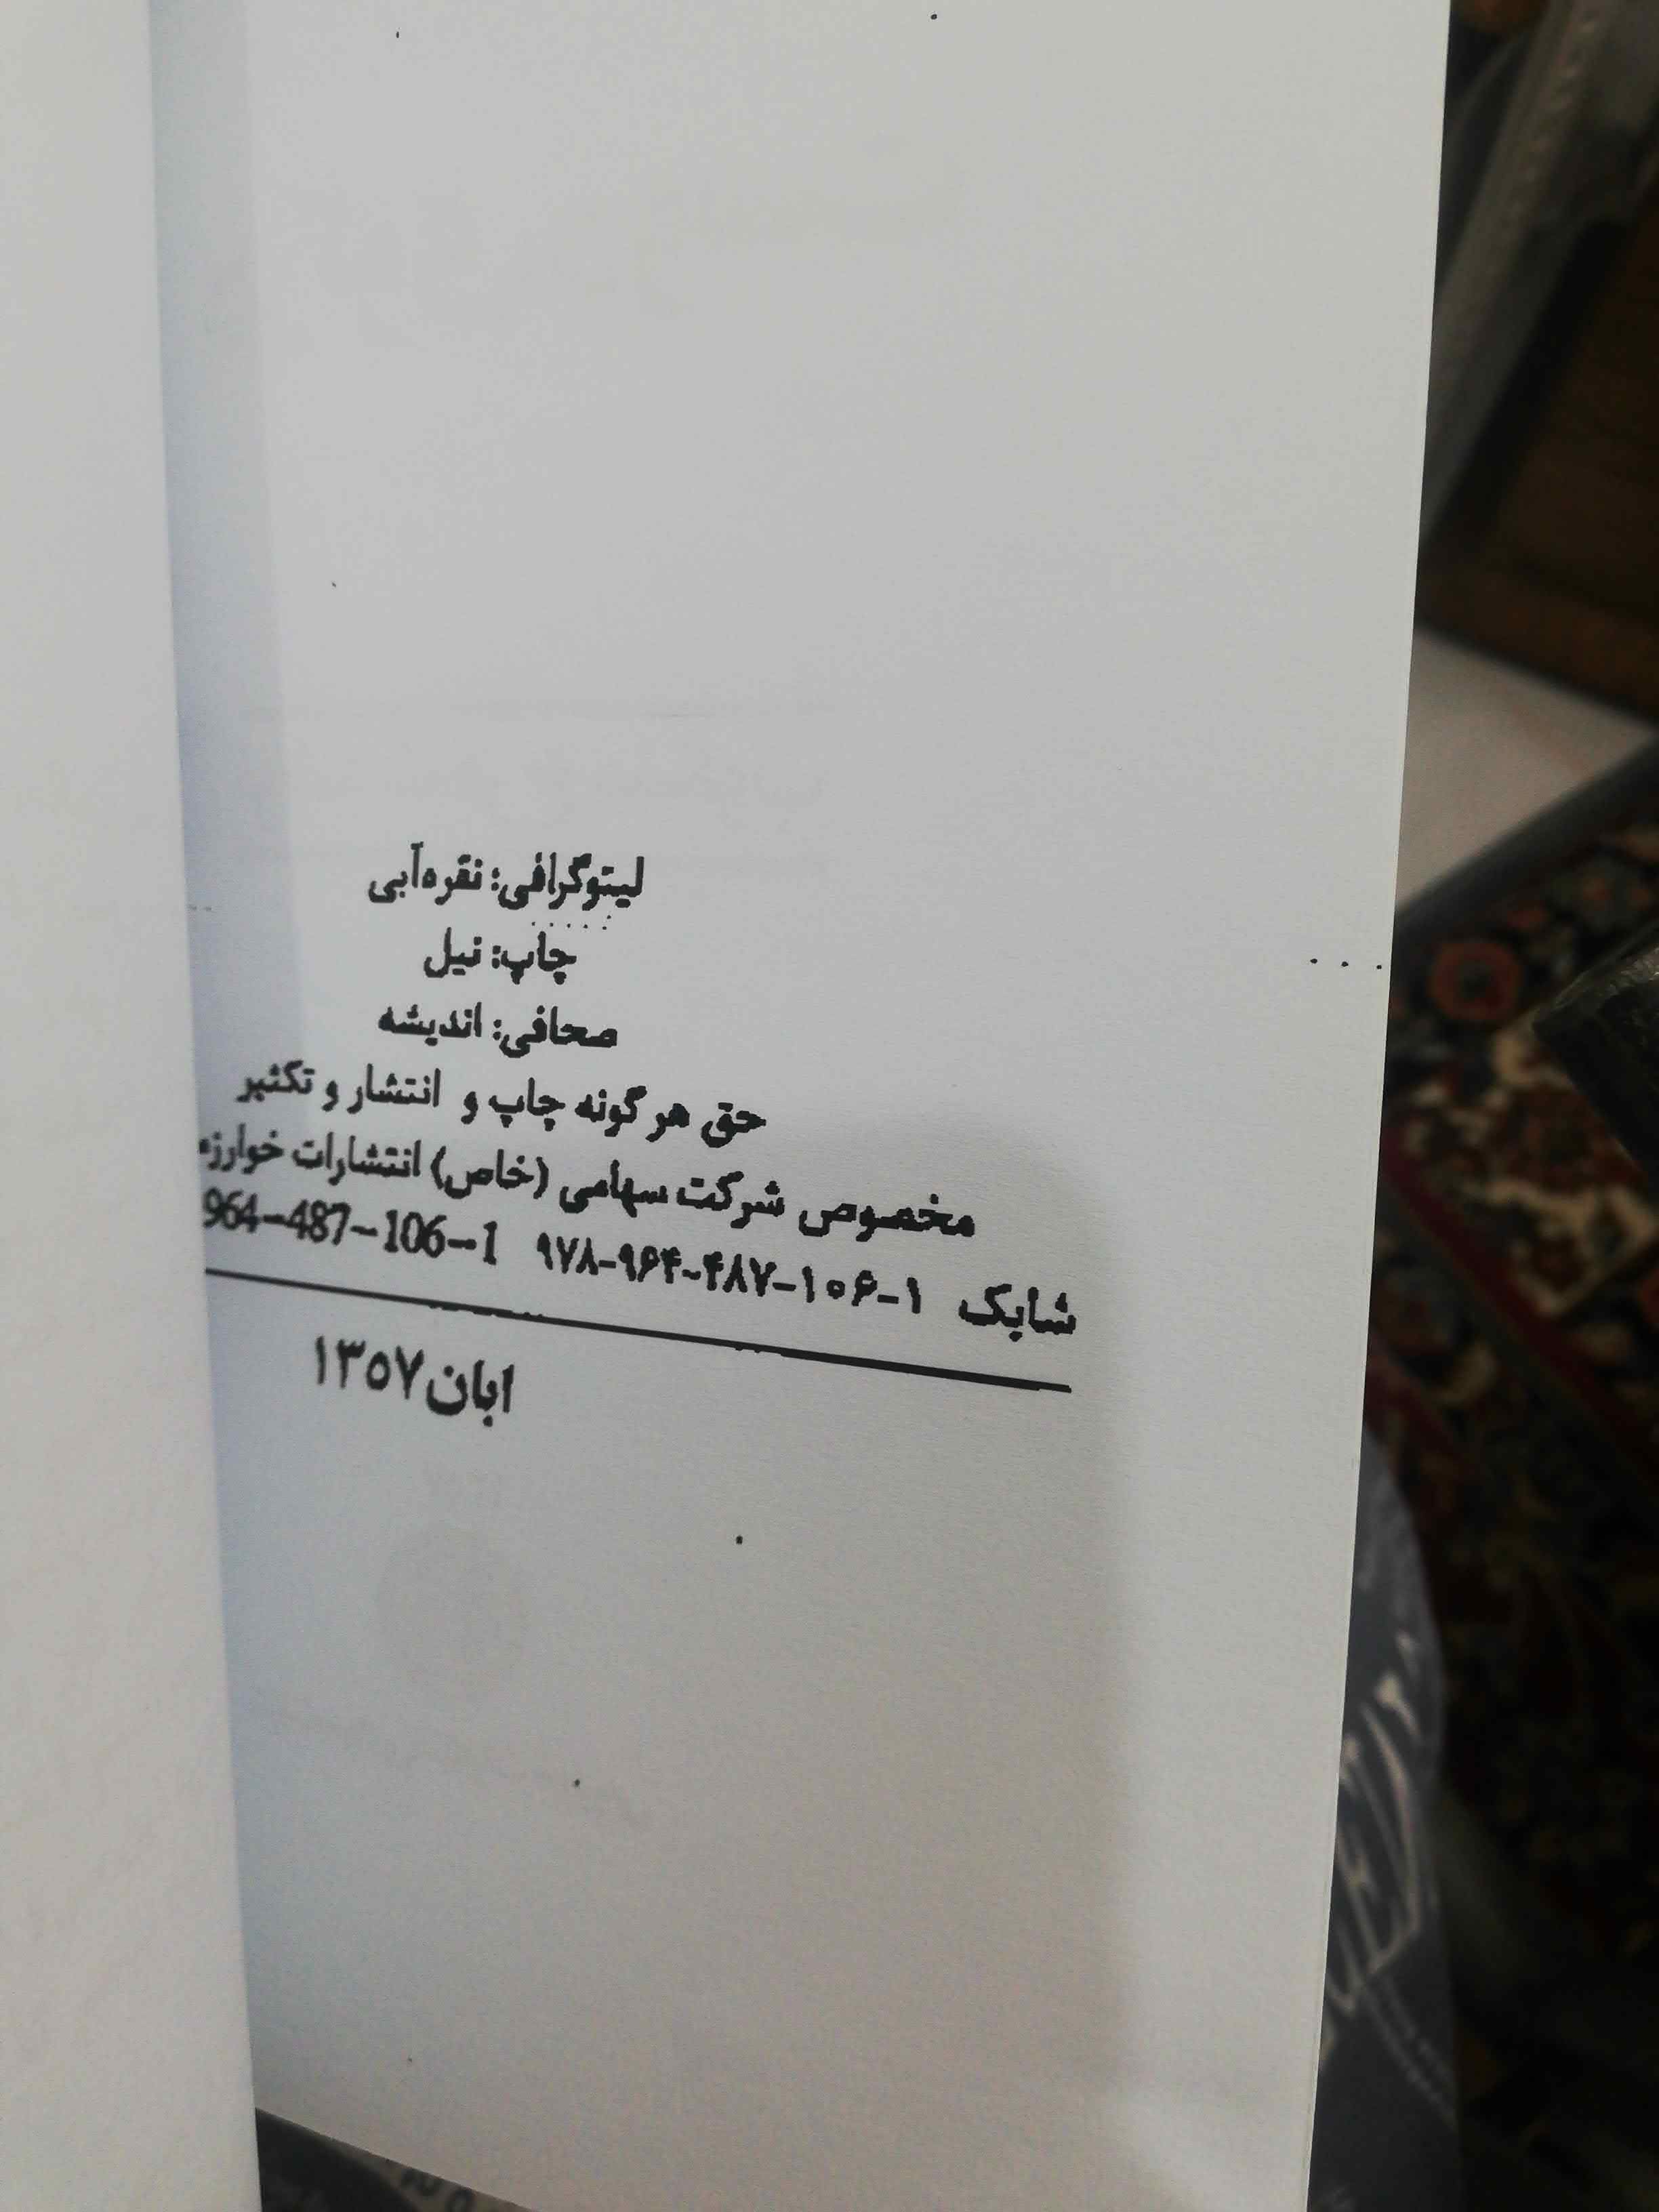 لیتوگرافی: نقره‌آبی
چاپ: نیل
صحافی: اندیشه
حق هر گونه چاپ و انتشار و تکثیر
مخصوص شرکت سهامی (خاص) انتشارات
شابک ۱-۱۰۶-۴۸۷-۹۶۴-۹۷۸ 964-487-106-1
ابان ۱۳۵۷